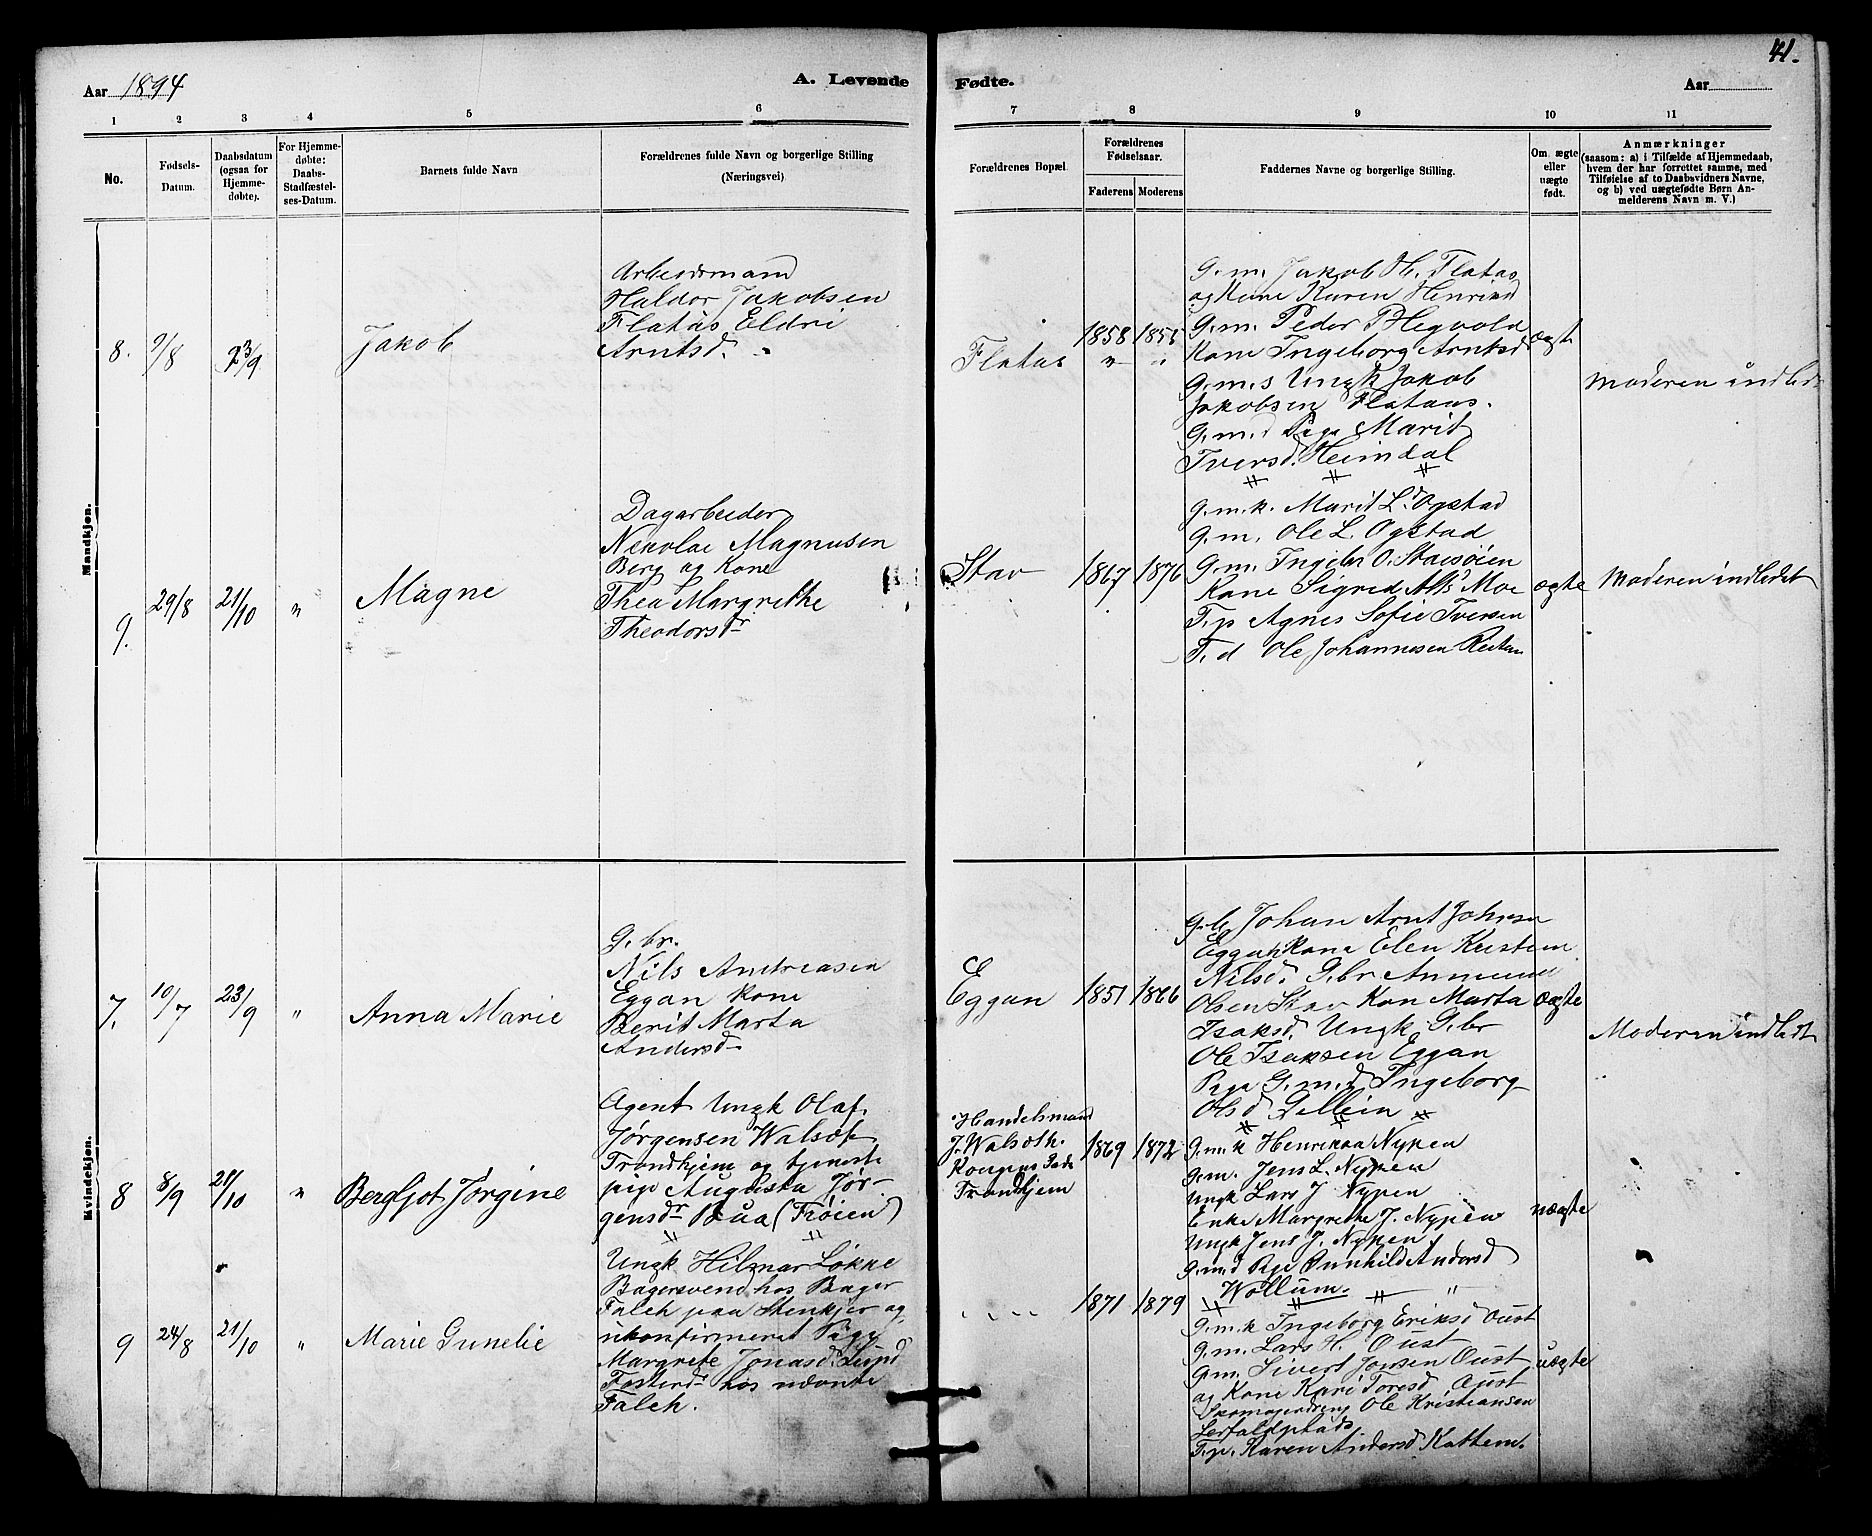 Aar 1894
A. Levende Fødte.
Aar
41.
1 2 3 4 5 6 7 8 9 10 11
No.
Fødsels-
Datum.
Daabsdatum
(ogsaa for
Hjemme-
døbte).
For Hjemme-
døbte:
Daabs-
Stadfæstel-
ses-Datum.
Barnets fulde Navn
Forældrenes fulde Navn og borgerlige Stilling
(Næringsvei).
Forældrenes Bopæl.
Forældrenes
Fødselsaar.
Faderens Moderens
Faddernes Navne og borgerlige Stilling.
Om ægte
eller
uægte
født.
Anmærkninger
(saasom: a) i Tilfælde af Hjemmedaab,
hvem der har forrettet samme, med
Tilføielse af to Daabsvidners Navne,
og b) ved uægtefødte Børn An-
melderens Navn m. V.)
Mandkjøn.
8. 9/8 23/9
Jakob
Arbeidsmand
Haldor Jakobsen
Flatås Eldri
Arntsd.
Flatas
1858 1855
G.m. Jakob H. Flatas
og Kone Karen Henriksd
G.m. Peder P Hegvold
Kone Ingeborg Arntsd
G.m.s Ungk Jakob
Jakobsen Flataas.
G.m.d Pige Marit
Iversd. Heimdal
ægte
Moderen indledt
9. 29/8 21/10 "
Magne
Dagarbeider
Nikolai Magnusen
Berg og Kone
Thea Margrethe
Theodorsdr
Stav
1867 1876
G.m.k. Marit L. Ogstad
G.m. Ole L. Ogstad
G.m. Ingebr O. Stavsøien
Kone Sigrid Moe
T.p Agnes Sofie Iversen
T.d Ole Johannesen
ægte
Moderen indledet
Kvindekjøn.
7. 10/7 23/9 "
Anna Marie
G.br.
Nils Andreasen
Eggan Kone
Berit Marta
Andersd
Eggan
1851 1866
G.br Johan Arnt Johnsen
Eggan Kone Elen Kristine
Nilsd. G.br
Olsen Stav Kon Marta
Isaksd. Ungk G.br
Ole Isaksen Eggan
Pige G.m.d Ingeborg
Olsd Gellein
ægte
Moderen indledt
8 8/9 21/10 "
Bergljot Jørgine
Agent Ungk Olaf
Jørgensen Walsøt
Trondhjem og tjeneste
pige Augusta Jør-
gensdr Båa (Frøien)
Handelsmand
J. Walsøth.
Kongens Gade
Trondhjem
1869 1872
G.m.k Henrikaa Nypen
G.m. Jens L. Nypen
Ungk Lars J Nypen
Enke Margrethe J. Nypen
Ungk Jens J. Nypen
G.m.d Pige Gunhild Andersd
Wollum.
uægte
9 24/8 21/10 "
Marie Gunelie
Ungk Hilmar Løkke
Bagersvend hos Bager
Falch paa Stenkjer og
ukonfirmeret Pige
Margrete Jonasd. Lund
Fosterdr hos nævnte
Falch.
1871 1879
G.m.k Ingeborg Eriksd Oust
G.m. Lars H. Oust
G.m. Sivert Jonsen Oust
og Kone Kari Toresd Oust
Skomagerdreng Ole Kristiansen
Lerfaldplads
T.p. Karen Andersd Kattem.
uægte